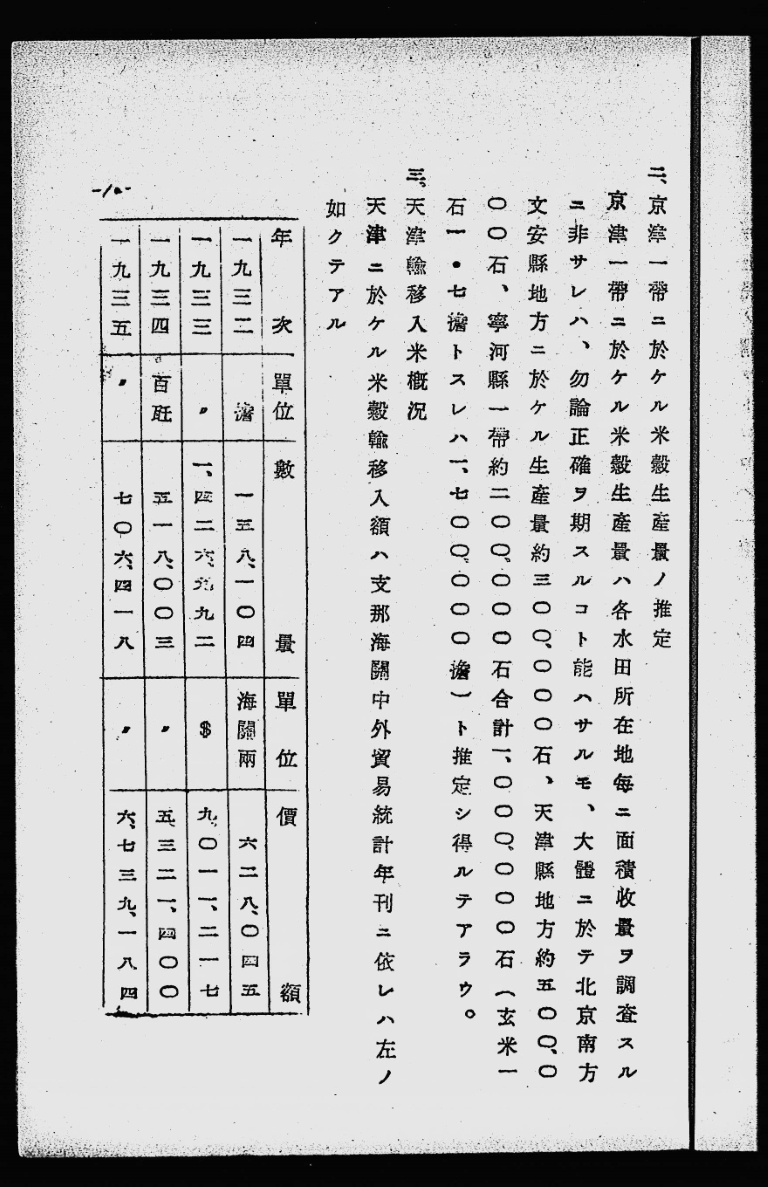 二、京津一帶ニ於ケル米穀生產量ノ推定
京津一帶ニ於ケル米穀生產量ハ各水田所在地每ニ面積收量ヲ調査スル
ニ非サレハ、勿論正確ヲ期スルコト能ハサルモ、大體ニ於テ北京南方
文安縣地方ニ於ケル生產量約三〇〇、〇〇〇石、天津縣地方約五〇〇、〇
〇〇石、寧河縣一帶約二〇〇、〇〇〇石合計一、〇〇〇、〇〇〇石（玄米一
石一・七擔トスレハ一、七〇〇、〇〇〇擔）ト推定シ得ルテアラウ。
三、天津輸移入米槪況
天津ニ於ケル米穀輸移入額ハ支那海關中外貿易統計年刊ニ依レハ左ノ
如クテアル
年次 單位 數量 單位 價額
一九三二 擔 一三八、一〇四 海關兩 六二八、〇四五
一九三三 〃 一、四二六、九九二 $ 九、〇一一、二一七
一九三四 百瓩 五一八、〇〇三 〃 五、三二一、四〇〇
一九三五 〃 七〇六、四一八 〃 六、七三九、一八四